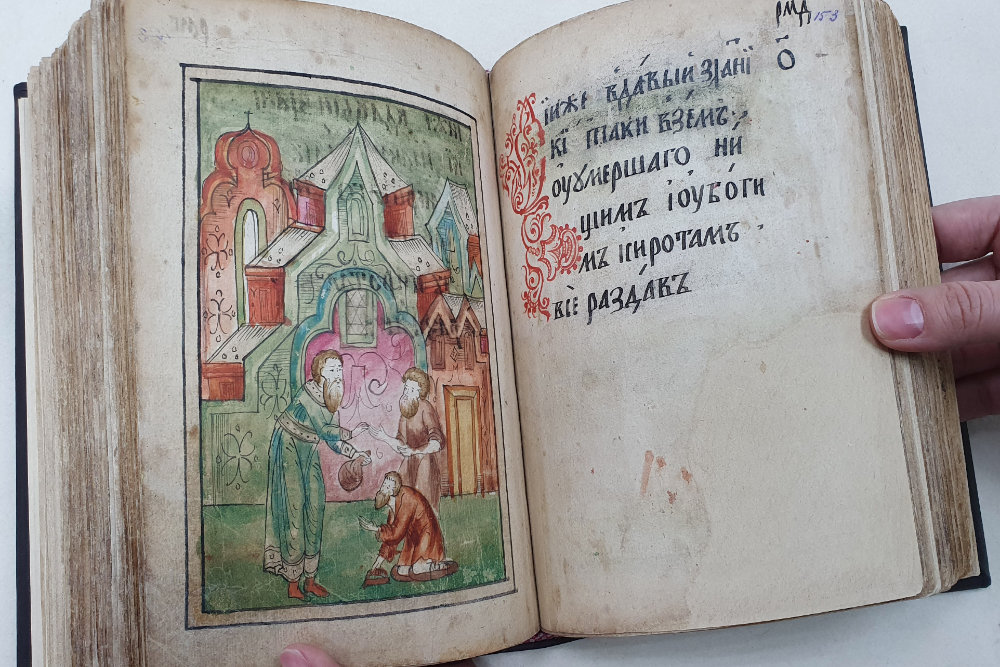 рмд 153
ііже вдавый зланїї
кї паки вземъ;
оуумершаго ни
щимъ іоубоги
мъ ісиротамъ·
всіе раздавъ